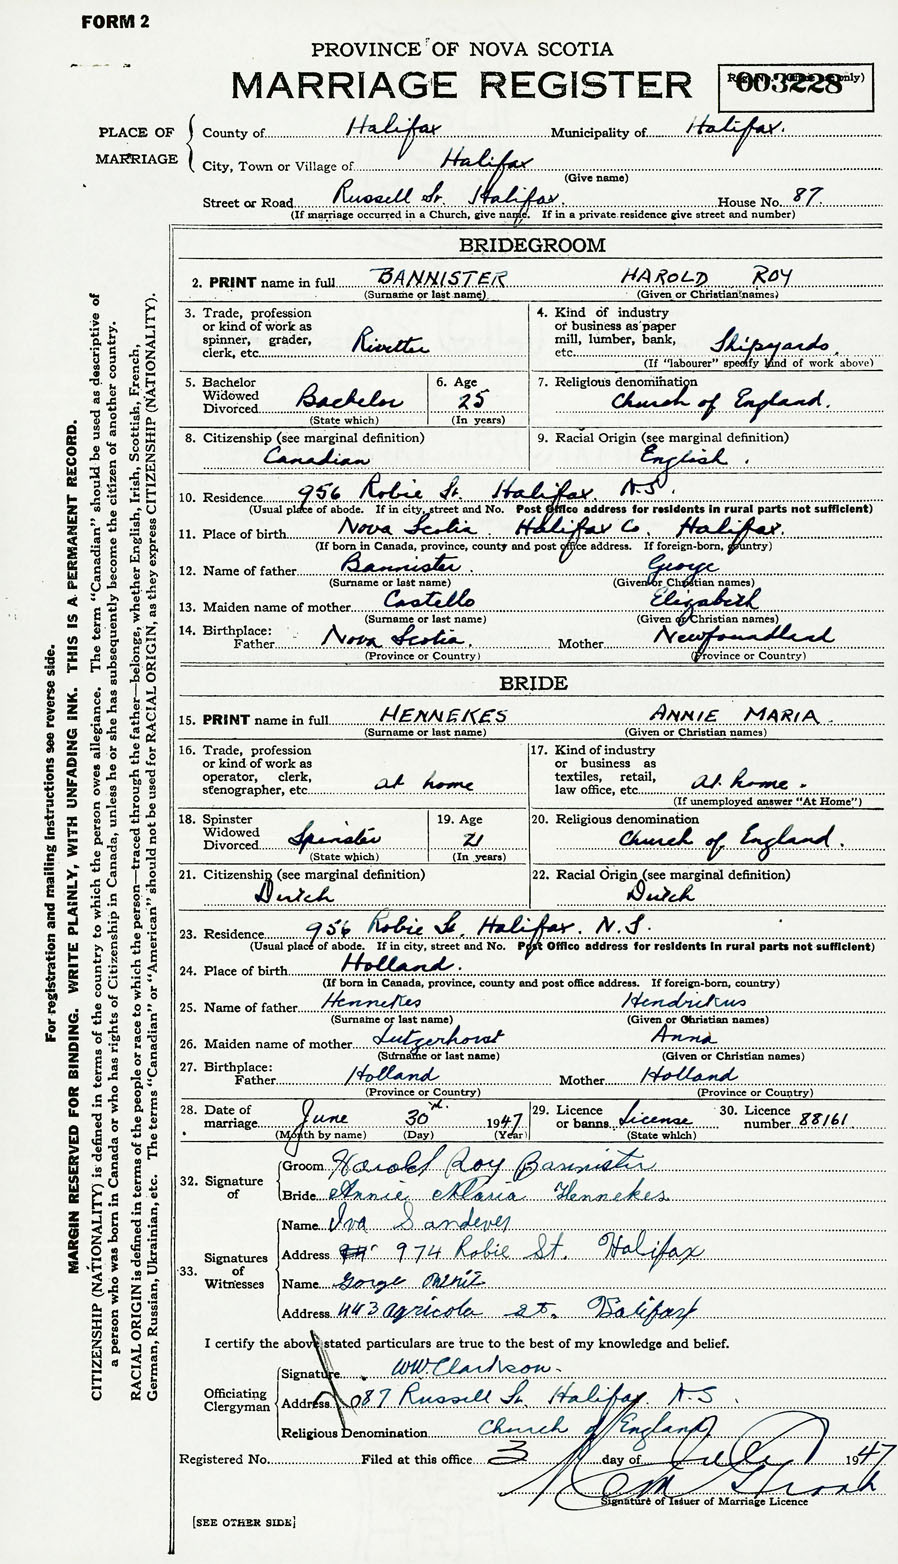 FORM 2
PROVINCE OF NOVA SCOTIA
MARRIAGE REGISTER
003228
PLACE OF MARRIAGE
County of Halifax Municipality of Halifax.
City, Town or Village of Halifax
(Give name)
Street or Road Russell St. Halifax. House No. 87.
(If marriage occurred in a Church, give name. If in a private residence give street and number)
BRIDEGROOM
2. PRINT name in full BANNISTER HAROLD ROY
(Surname or last name) (Given or Christian names)
3. Trade, profession or kind of work as spinner, grader, clerk, etc. Rivetter
4. Kind of industry or business as paper mill, lumber, bank, etc. Shipyards.
(If "labourer" specify kind of work above)
5. Bachelor Widowed Divorced Bachelor
(State which)
6. Age 25
(In years)
7. Religious denomination
Church of England.
8. Citizenship (see marginal definition)
Canadian
9. Racial Origin (see marginal definition)
English.
10. Residence 956 Robie St. Halifax N.S.
(Usual place of abode. If in city, street and No. Post Office address for residents in rural parts not sufficient)
11. Place of birth Nova Scotia. Halifax Co. Halifax.
(If born in Canada, province, county and post office address. If foreign-born, country)
12. Name of father Bannister. George
(Surname or last name) (Given or Christian names)
13. Maiden name of mother Costello Elizabeth
(Surname or last name) (Given or Christian names)
14. Birthplace:
Father Nova Scotia. Mother Newfoundland
(Province or Country) (Province or Country)
BRIDE
15. PRINT name in full HENNEKES ANNIE MARIA.
(Surname or last name) (Given or Christian names)
16. Trade, profession or kind of work as operator, clerk, stenographer, etc. at home
17. Kind of industry or business as textiles, retail, law office, etc. At home.
(If unemployed answer "At Home")
18. Spinster Widowed Divorced Spinster
(State which)
19. Age 21
(In years)
20. Religious denomination
Church of England.
21. Citizenship (see marginal definition)
Dutch
22. Racial Origin (see marginal definition)
Dutch
23. Residence 956 Robie St. Halifax. N.S.
(Usual place of abode. If in city, street and No. Post Office address for residents in rural parts not sufficient)
24. Place of birth Holland.
(If born in Canada, province, county and post office address. If foreign-born, country)
25. Name of father Hennekes Hendrikus
(Surname or last name) (Given or Christian names)
26. Maiden name of mother Lutgerhorst Anna
(Surname or last name) (Given or Christian names)
27. Birthplace:
Father Holland Mother Holland
(Province or Country) (Province or Country)
28. Date of marriage June 30 1947
(Month by name) (Day) (Year)
29. Licence or banns License
(State which)
30. Licence number 88161
32. Signature of
Groom Harold Roy Bannister
Bride Annie Maria Hennekes
33. Signatures of Witnesses
Name Iva
Address 974 Robie St. Halifax
Name
Address 443 Agricola St. Halifax
I certify the above stated particulars are true to the best of my knowledge and belief.
Officiating Clergyman
Signature WWClarkson.
Address 87 Russell St. Halifax. N.S.
Religious Denomination Church of England
Registered No. Filed at this office 3 day of July 1947
Signature of Issuer of Marriage Licence
[SEE OTHER SIDE]
For registration and mailing instructions see reverse side.
MARGIN RESERVED FOR BINDING. WRITE PLAINLY, WITH UNFADING INK. THIS IS A PERMANENT RECORD.
CITIZENSHIP (NATIONALITY) is defined in terms of the country to which the person owes allegiance. The term "Canadian" should be used as descriptive of
a person who was born in Canada or who has rights of Citizenship in Canada, unless he or she has subsequently become the citizen of another country.
RACIAL ORIGIN is defined in terms of the people or race to which the person—traced through the father—belongs, whether English, Irish, Scottish, French,
German, Russian, Ukrainian, etc. The terms "Canadian" or "American" should not be used for RACIAL ORIGIN, as they express CITIZENSHIP (NATIONALITY).